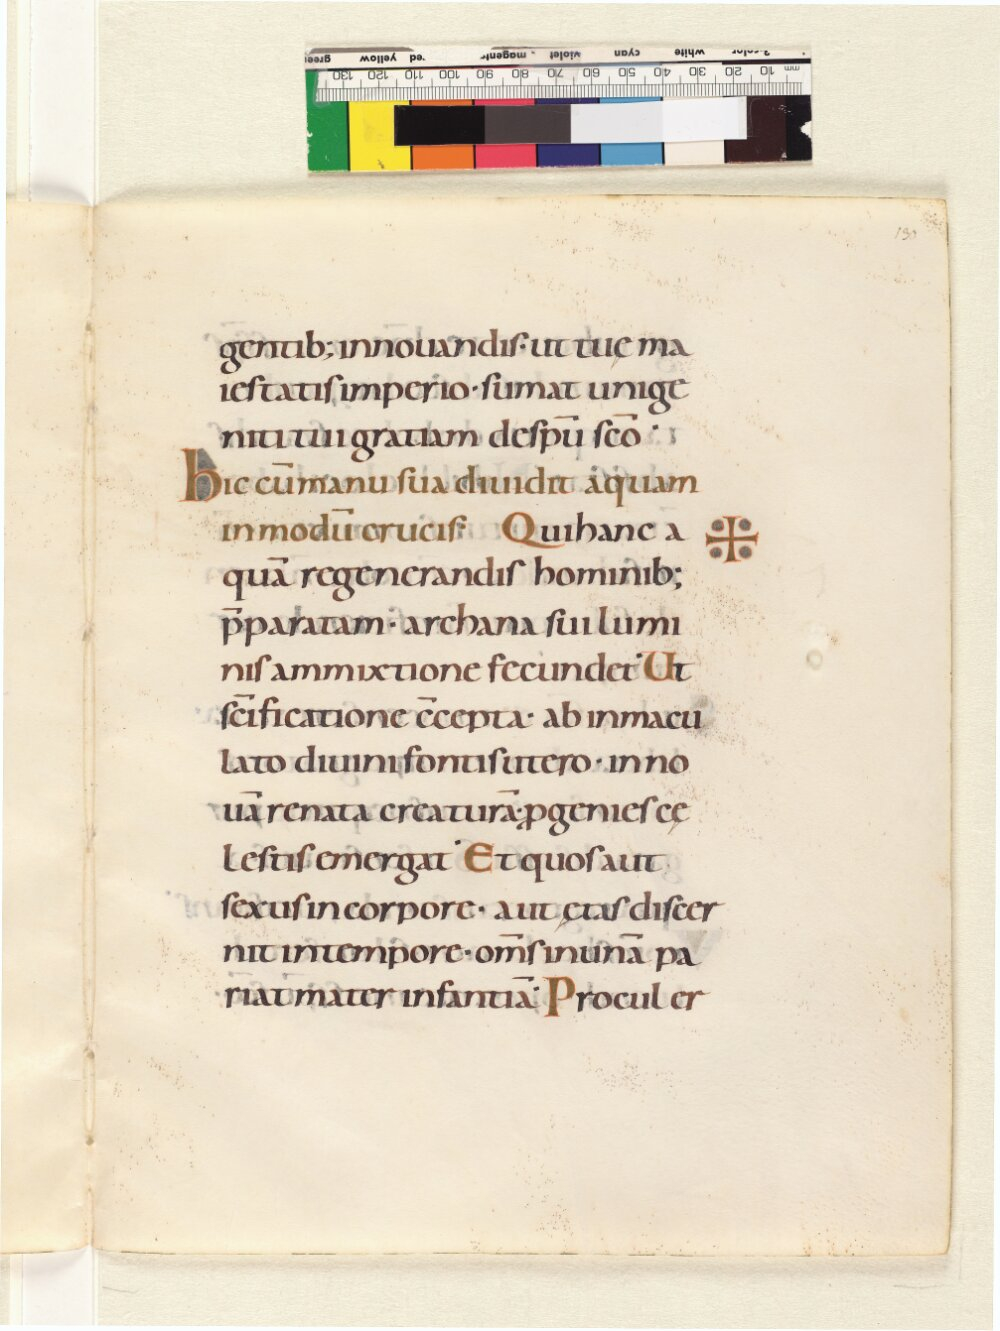 green yellow red magenta violet cyan white 3-color
130 120 110 100 90 80 70 60 50 40 30 20 10 mm
130
gentib; innouandis· ut tuę ma
iestatis imperio· sumat unige
niti tui gratiam de sp̄u sc̄o·
hic cū manu sua diuidit aquam
in modū crucis· Qui hanc a
quā regenerandis hominib;
p̄paratam· archana sui lumi
nis ammixtione fecundet· Ut
sc̄ificatione c̄cepta· ab inmacu
lato diuini fontis utero· in no
uā renata creaturā· ꝓgenies cę
lestis emergat· Et quos aut
sexus in corpore· aut ętas discer
nit in tempore· om̄s in unā pa
riat mater infantiā· Procul er